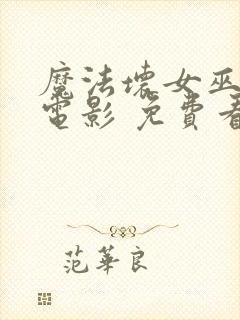 魔法壞女巫
電影 免費看
范華良